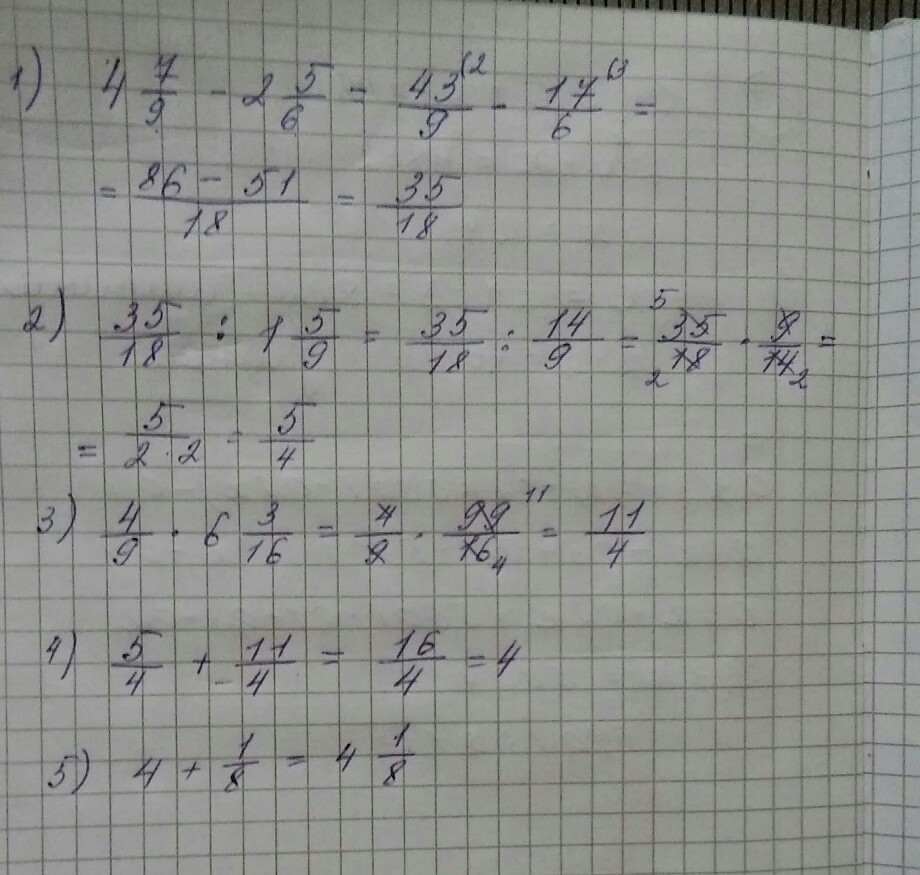 1) 4 7/9 - 2 5/6 = 43/9 (2 - 17/6 (3 =
= 86 - 51/18 = 35/18
2) 35/18 : 1 5/9 = 35/18 : 14/9 = 5 35/18 2 · 9/14 2 =
= 5/2 · 2 = 5/4
3) 4/9 · 6 3/16 = 4/9 · 99 11/16 4 = 11/4
4) 5/4 + 11/4 = 16/4 = 4
5) 4 + 1/8 = 4 1/8